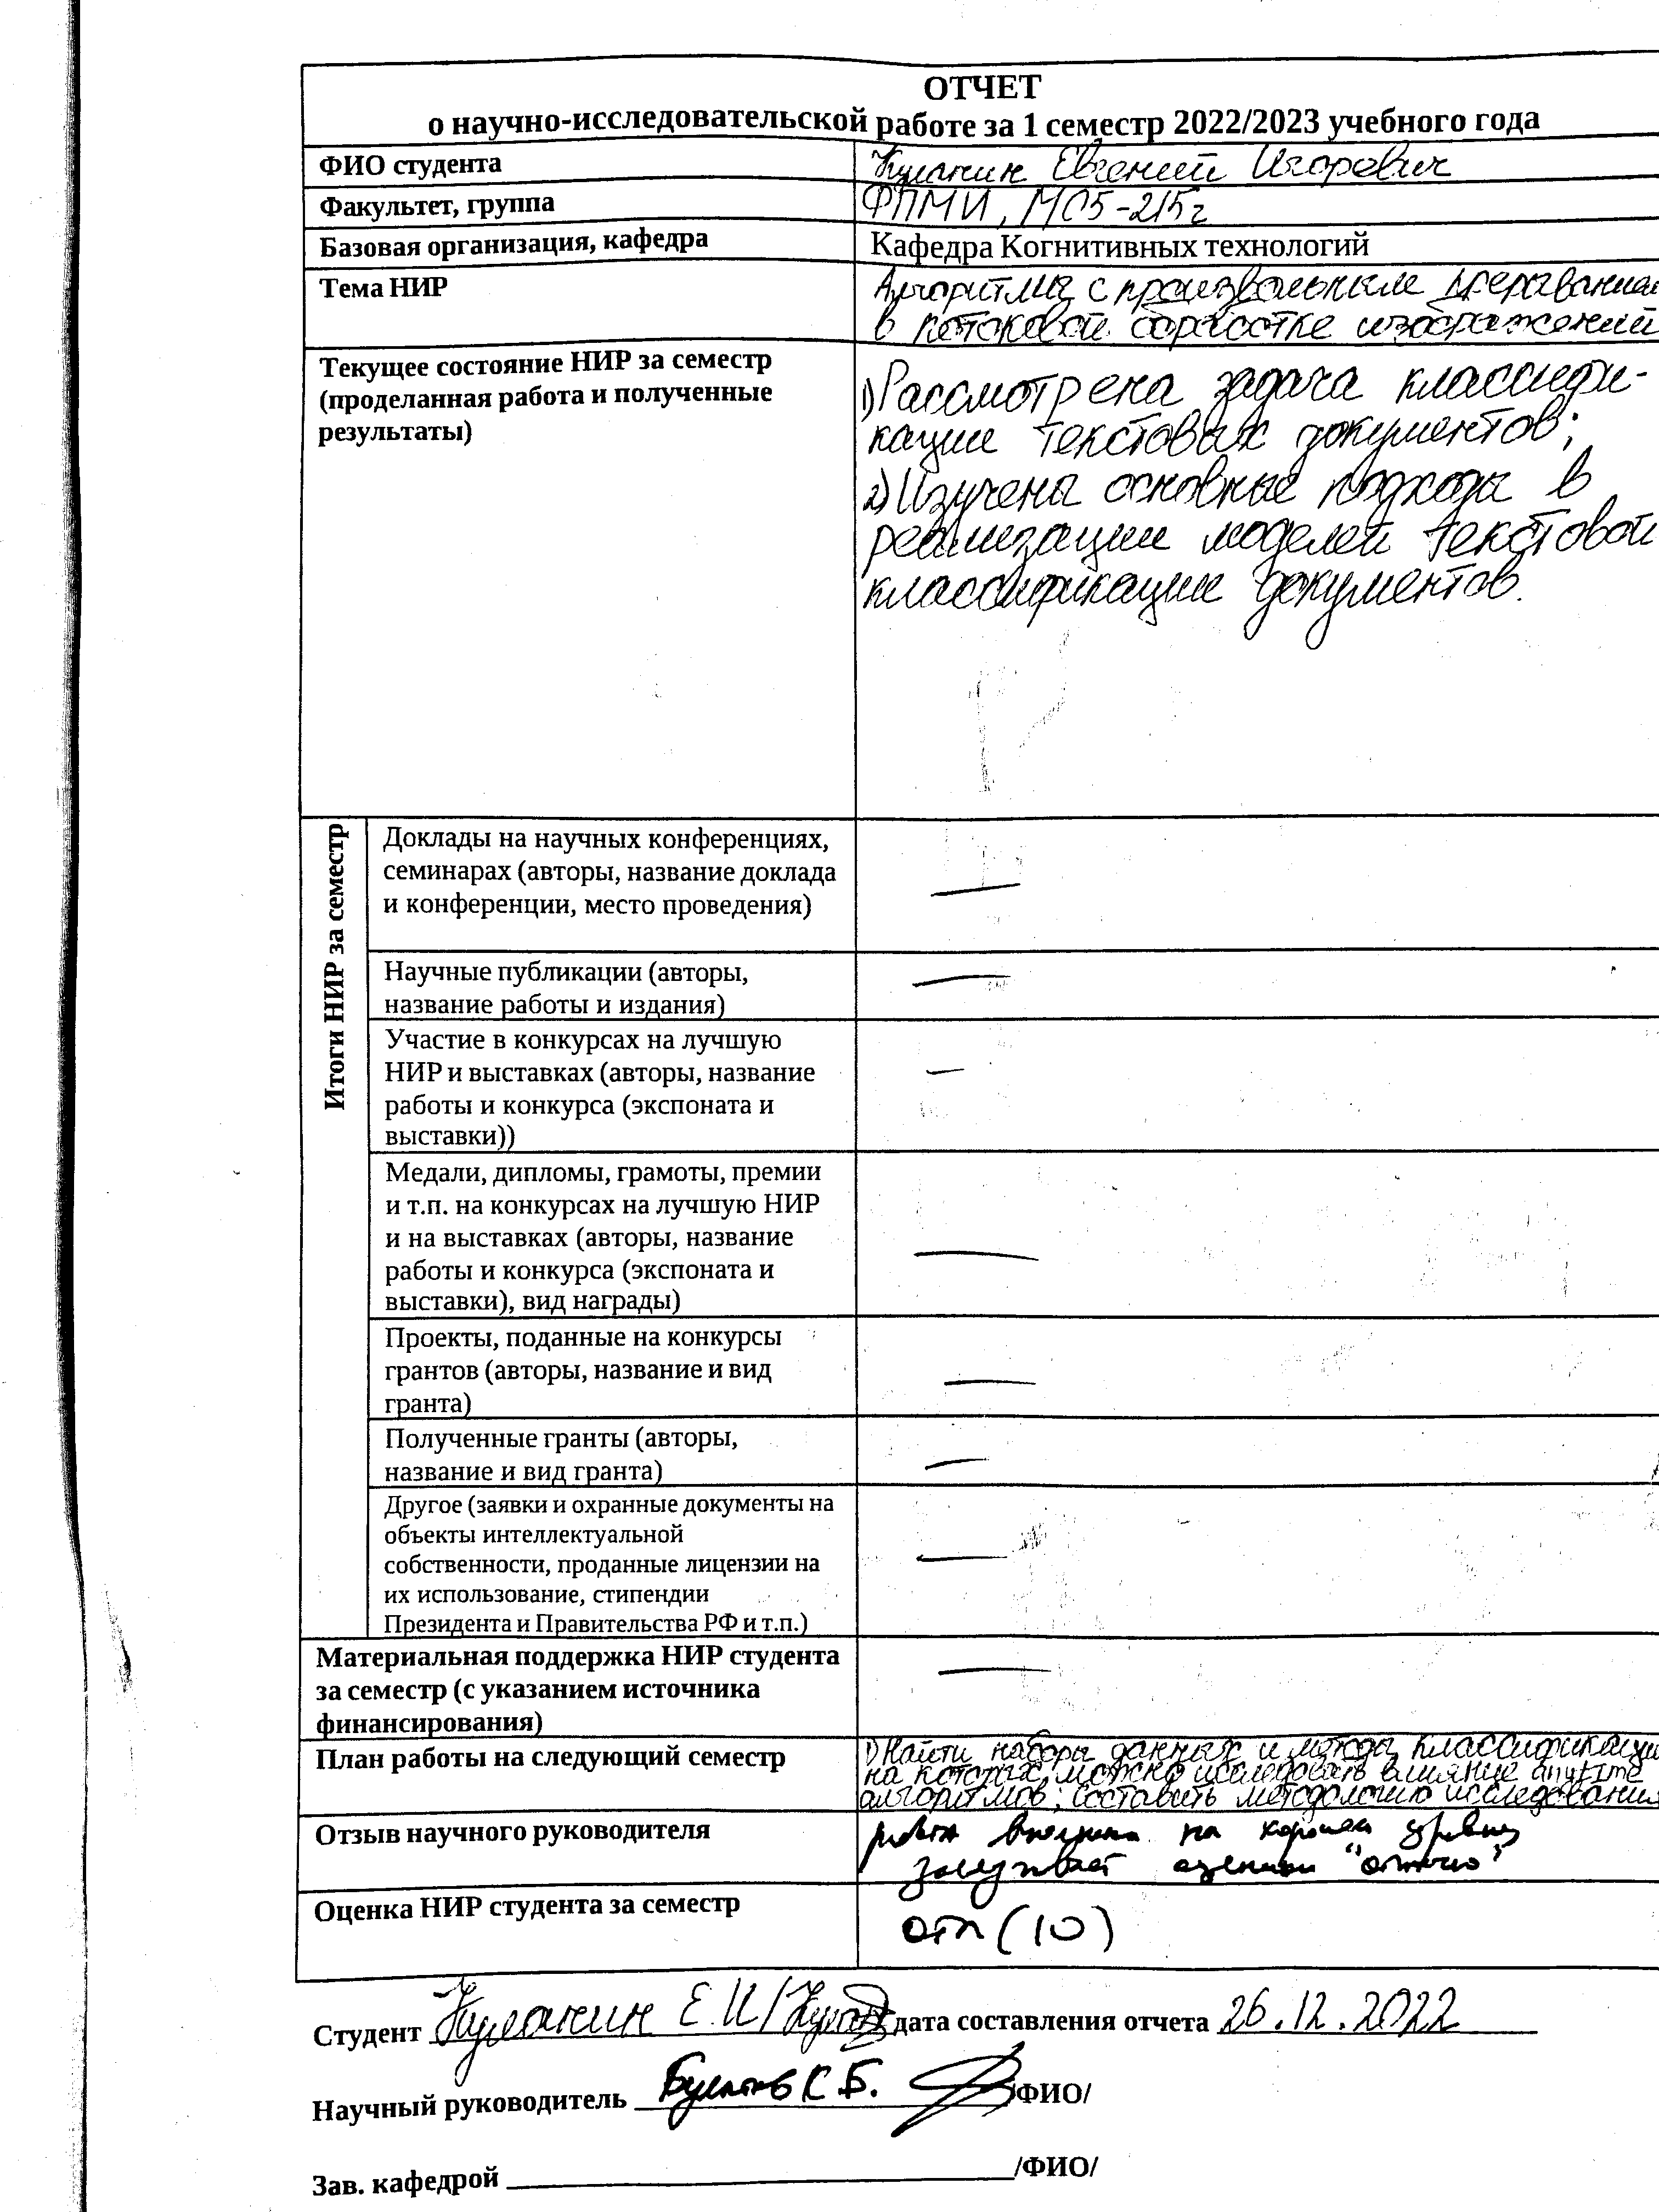 ОТЧЕТ
о научно-исследовательской работе за 1 семестр 2022/2023 учебного года
ФИО студента
Евгений Игоревич
Факультет, группа
ФПМИ, М05-215г
Базовая организация, кафедра
Кафедра Когнитивных технологий
Тема НИР
Алгоритмы с произвольным прерыванием
в потоковой обработке изображений
Текущее состояние НИР за семестр
(проделанная работа и полученные
результаты)
1) Рассмотрена задача классифи-
кации текстовых документов;
2) Изучены основные подходы в
реализации моделей текстовой
классификации документов.
Итоги НИР за семестр
Доклады на научных конференциях,
семинарах (авторы, название доклада
и конференции, место проведения)
—
Научные публикации (авторы,
название работы и издания)
—
Участие в конкурсах на лучшую
НИР и выставках (авторы, название
работы и конкурса (экспоната и
выставки))
—
Медали, дипломы, грамоты, премии
и т.п. на конкурсах на лучшую НИР
и на выставках (авторы, название
работы и конкурса (экспоната и
выставки), вид награды)
—
Проекты, поданные на конкурсы
грантов (авторы, название и вид
гранта)
—
Полученные гранты (авторы,
название и вид гранта)
—
Другое (заявки и охранные документы на
объекты интеллектуальной
собственности, проданные лицензии на
их использование, стипендии
Президента и Правительства РФ и т.п.)
—
Материальная поддержка НИР студента
за семестр (с указанием источника
финансирования)
—
План работы на следующий семестр
1) Найти наборы данных и методы классификации
на которых можно исследовать влияние anytime
алгоритмов; составить методологию исследования
Отзыв научного руководителя
работа выполнена на хорошем уровне
заслуживает оценки "отлично"
Оценка НИР студента за семестр
отл (10)
Студент Е.И/ дата составления отчета 26.12.2022
Научный руководитель Булатов К.Б. /ФИО/
Зав. кафедрой /ФИО/